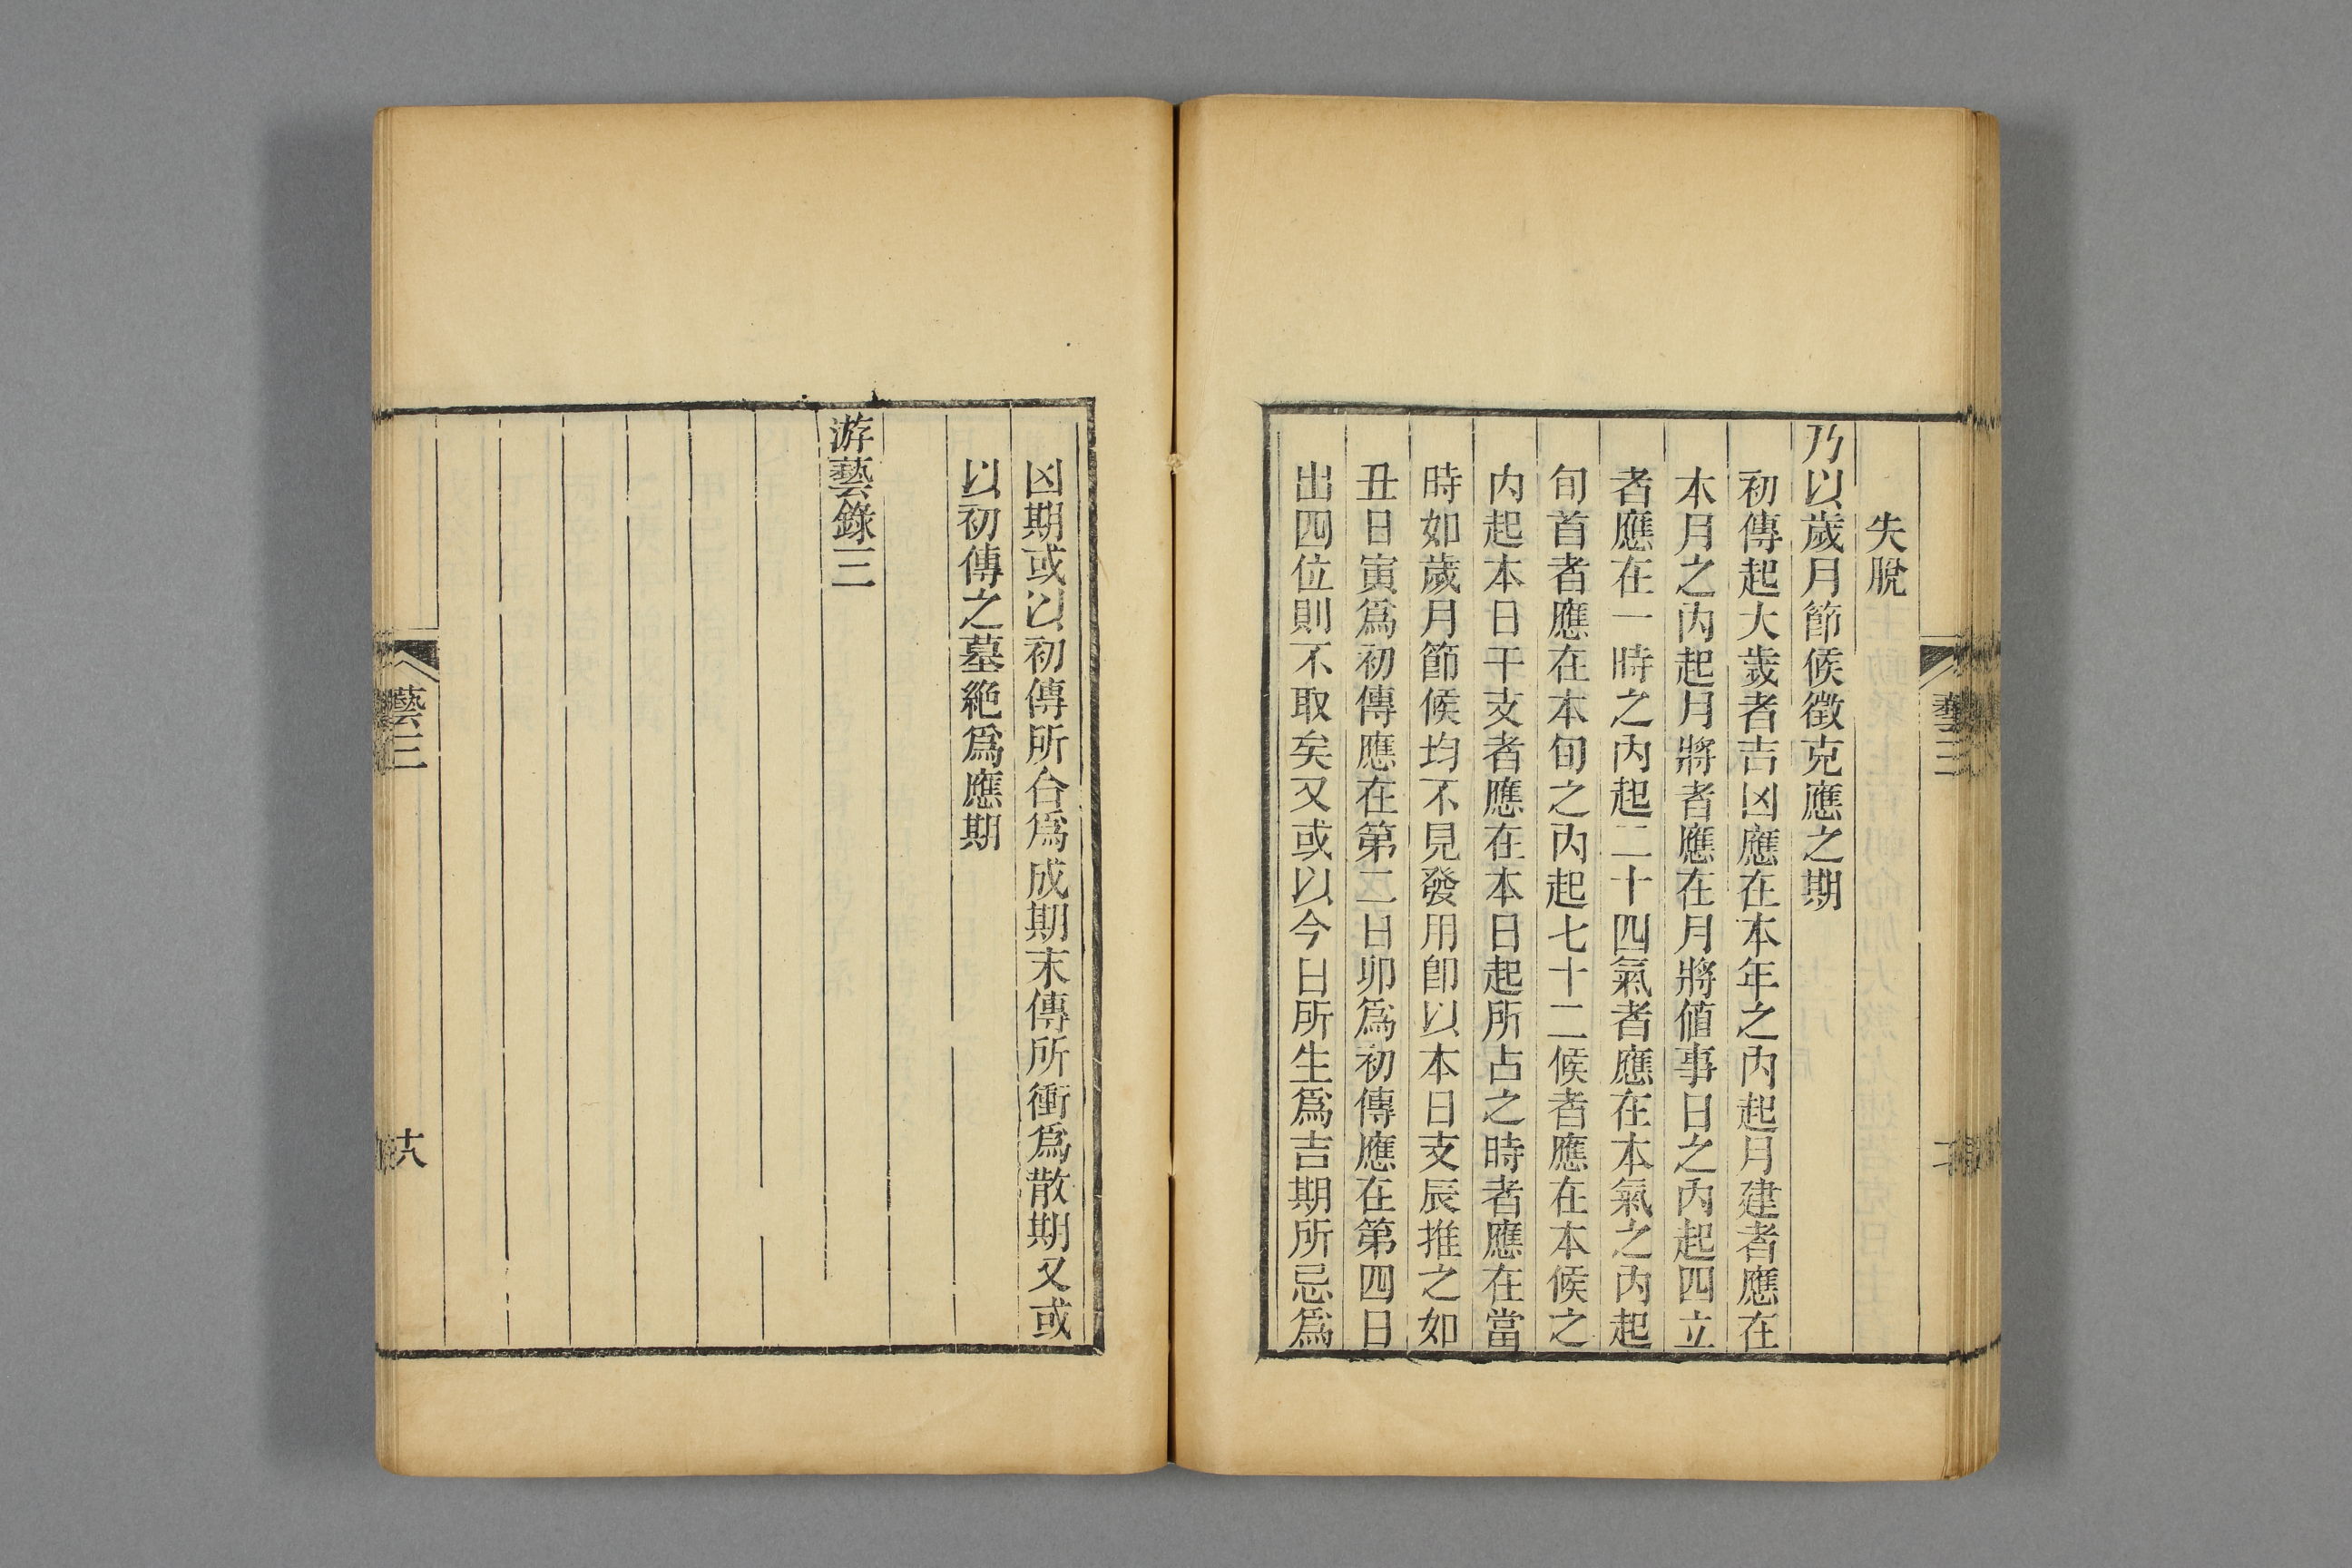 失脫
乃以歲月節候徵克應之期
初傳起大歲者吉凶應在本年之內起月建者應在
本月之內起月將者應在月將値事日之內起四立
者應在一時之內起二十四氣者應在本氣之內起
旬首者應在本旬之內起七十二候者應在本候之
內起本日干支者應在本日起所占之時者應在當
時如歲月節候均不見發用卽以本日支辰推之如
丑日寅爲初傳應在第二日卯爲初傳應在第四日
出四位則不取矣又或以今日所生爲吉期所忌爲
凶期或以初傳所合爲成期末傳所衝爲散期又或
以初傳之墓絶爲應期
游藝錄三
藝三
十八
藝三